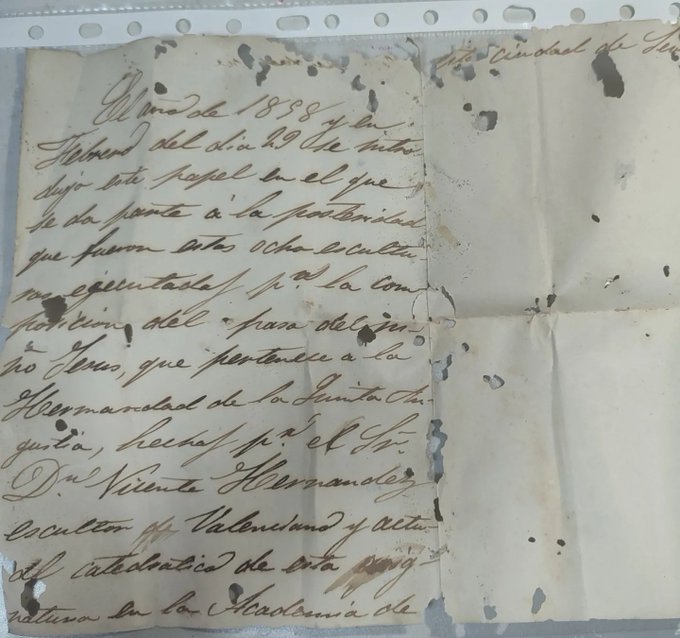 El año de 1898 y en
Febrero del dia 29 se intro
dujo este papel en el que
se da parte á la posteridad
que fueron estas ocho escultu
ras ejecutadas pª la com
posicion del paso del ni
ño Jesus, que pertenece a la
Hermandad de la Quinta An
gustia, hechas pʳ el Sr.
Dⁿ Vicente Hernandez
escultor Valenciano y actu
al catedratico de esta asig-
natura en la Academia de
esta ciudad de